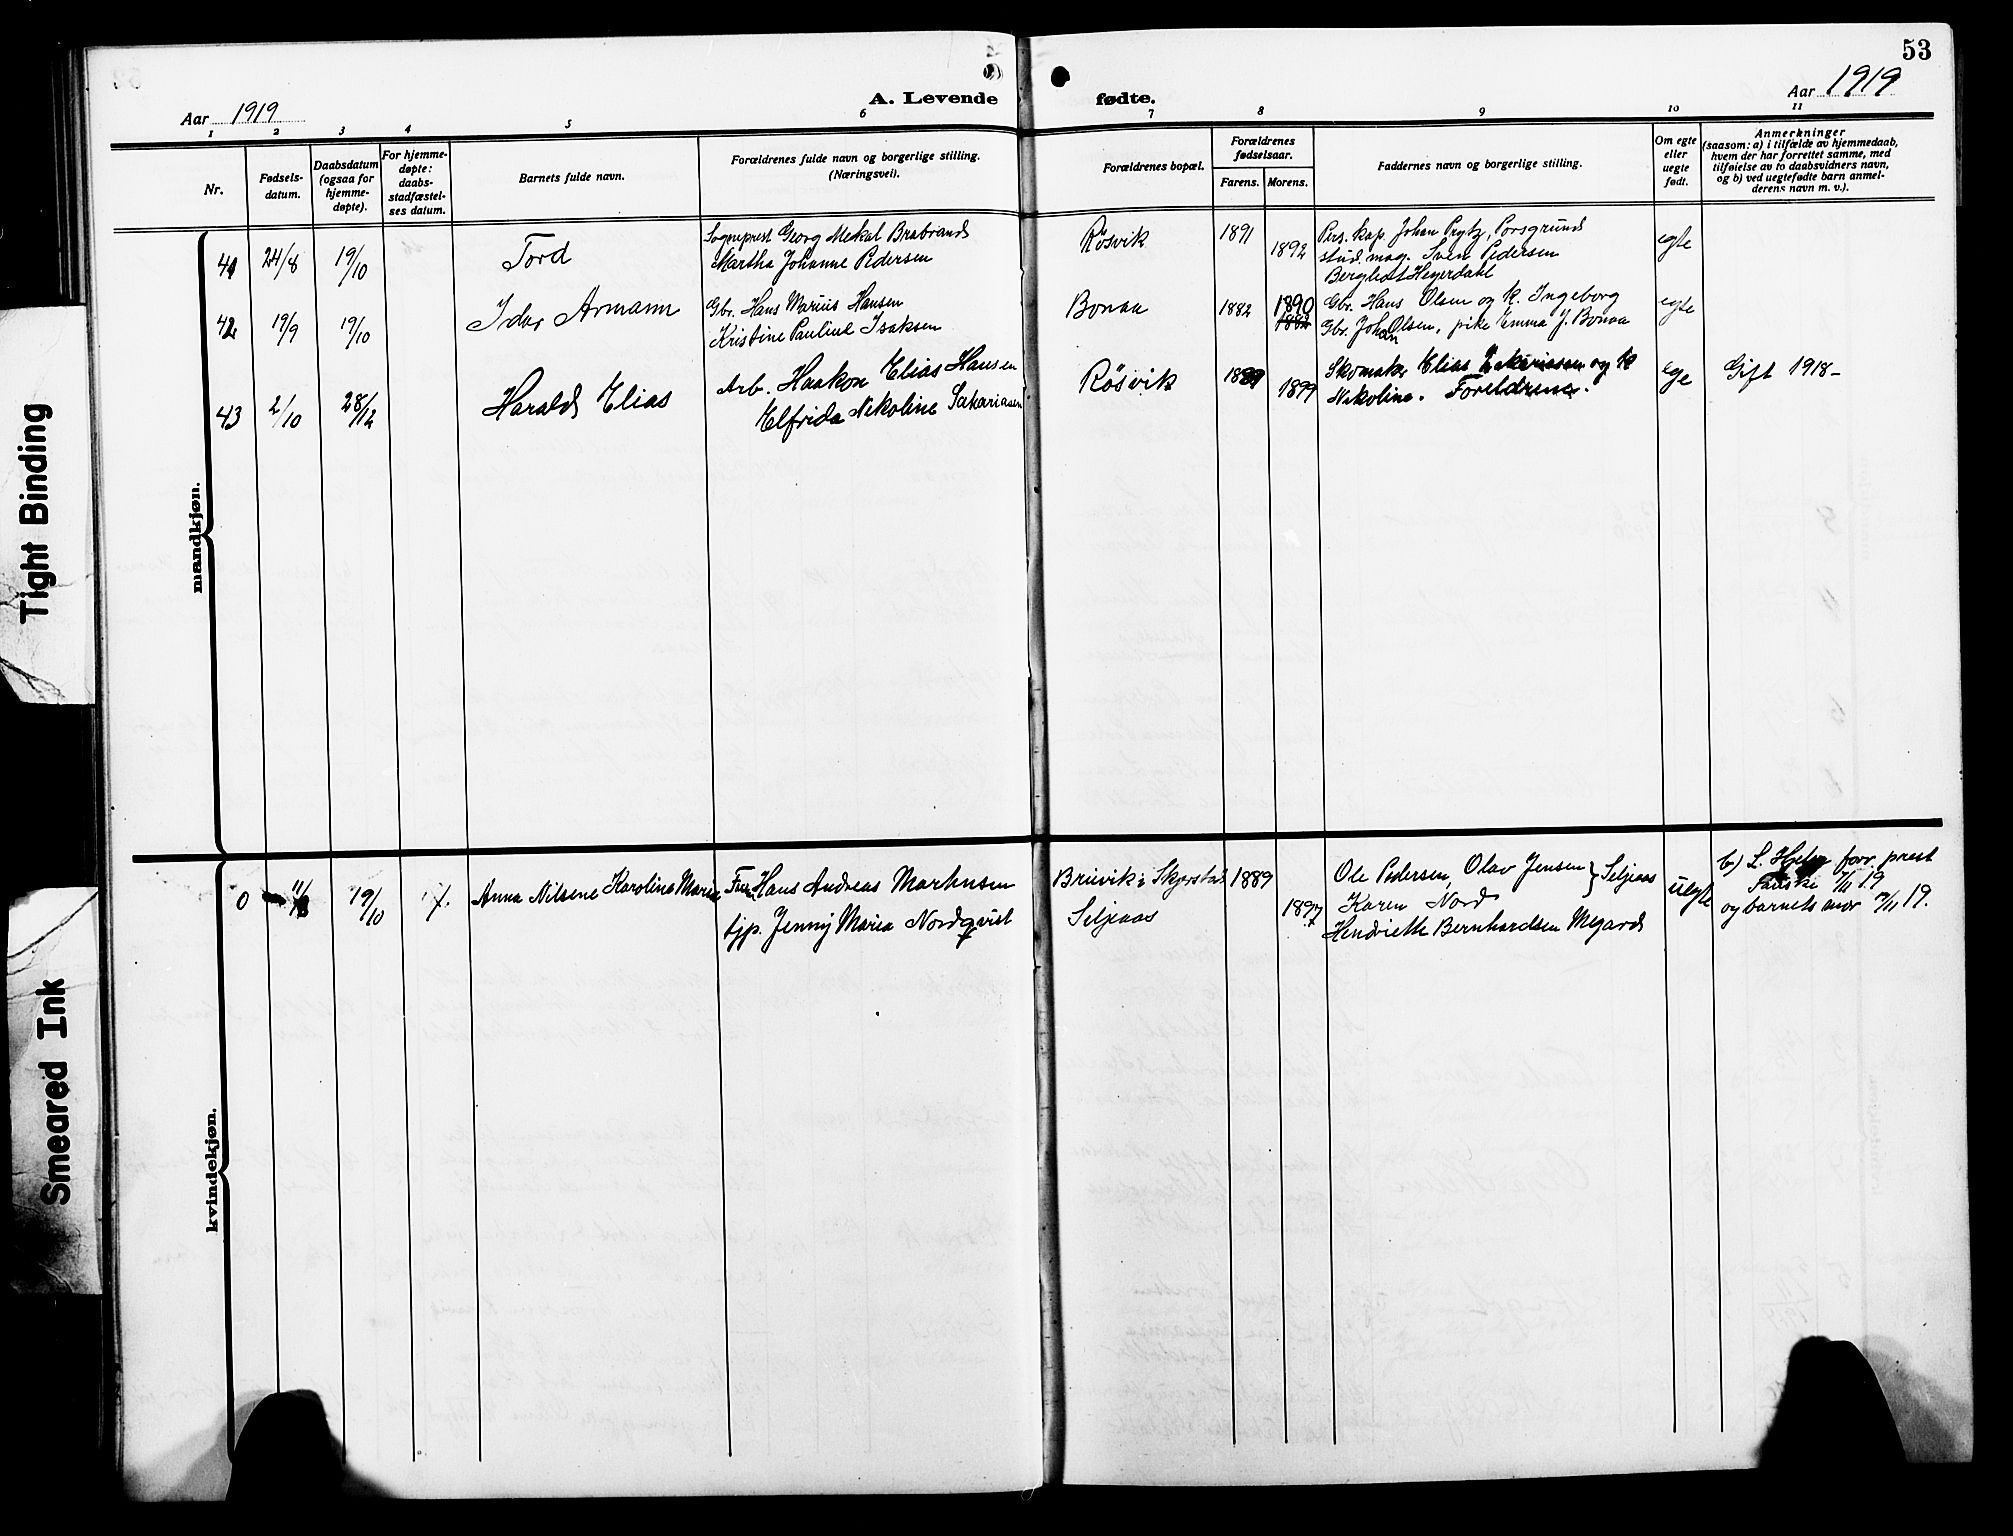 Tight Binding
Smeared Ink
53
Aar 1919
A. Levende fødte.
Aar 1919
1 2 3 4 5 6 7 8 9 10 11
Nr.
Fødsels-
datum.
Daabsdatum
(ogsaa for
hjemme-
døpte).
For hjemme-
døpte:
daabs-
stadfæstel-
ses datum.
Barnets fulde navn.
Forældrenes fulde navn og borgerlige stilling.
(Næringsvei).
Forældrenes bopæl.
Forældrenes
fødselsaar.
Farens. Morens.
Faddernes navn og borgerlige stilling.
Om egte
eller
uegte
født.
Anmerkninger
(saasom: a) i tilfælde av hjemmedaab,
hvem der har forrettet samme, med
tilføielse av to daabsvidners navn,
og b) ved uegtefødte barn anmel-
derens navn m. v.).
mandkjøn.
41 24/8 19/10 Tord
Sogneprest Georg Mekal Brabrand
Martha Johanne Pedersen
Røsvik 1891 1892
Pers. kap. Johan Prytz, Porsgrund
stud. mag. Sven Pedersen
Bergliot Heyerdahl
egte
42 19/9 19/10 Idar Armann
Gbr. Hans Marius Hansen
Kristine Pauline Isaksen
Bonaa 1882 1890
1882
Gbr. Hans Olsen og K. Ingeborg
Gbr. Johan Olsen, pike Emma J. Bonaa
egte
43 2/10 28/12 Harald Elias
Arb. Haakon Elias Hansen
Elfrida Nikoline Sakariasen
Røsvik 1899
Skomaker Elias Zakariassen og K
Nikoline. Foreldrene.
ege
Gift 1918-
kvindekjøn.
0 19/10 Anna Nilsene Karoline Marie
Hans Andreas Martinsen
tjp. Jenny Maria Nordqvist
Bruvik i Skjerstad
Seljeaas
1889 1897
Ole Pedersen, Olav Jensen } Seljeaas
Karen Nord
Henriette Bernhardsen Megard
uegte
b) L. forr. prest
Fauske 19
og barnets mor 19.